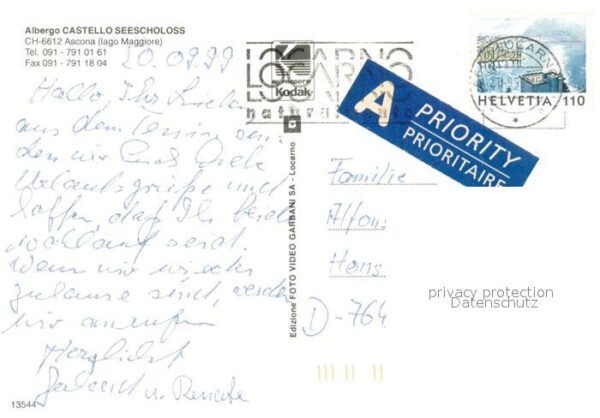 Albergo CASTELLO SEESCHOLOSS
CH-6612 Ascona (lago Maggiore)
Tel. 091 - 791 01 61
Fax 091 - 791 18 04
20.09.99
Hallo, Ihr
aus dem Tessin sen
den wir Euch viele
Urlaubsgrüße und
hoffen, daß Ihr beide
wohlauf seid.
Wenn wir wieder
zuhause sind, werden
wir anrufen
Herzlichst
u. Renate
13544
Edizione FOTO VIDEO GARBANI SA - Locarno
LOCARNO
LOCARNO
LOCARNO
Kodak
naturalmente
LOCARNO
HELVETIA 110
A PRIORITY
PRIORITAIRE
Familie
Alfons
Hans
D-764
privacy protection
Datenschutz